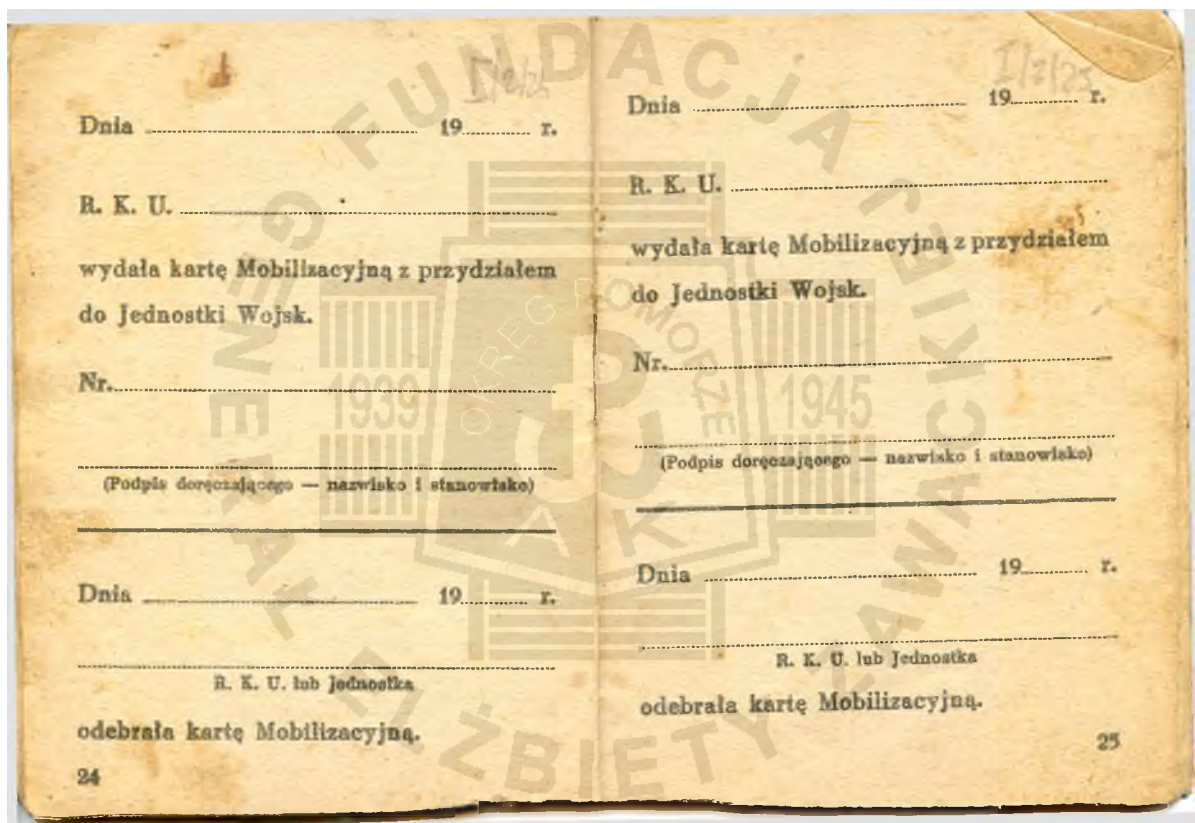 I/2/25
Dnia ........................ 19........ r.
R. K. U. ........................
wydała kartę Mobilizacyjną z przydziałem
do Jednostki Wojsk.
Nr.........................
(Podpis doręczającego — nazwisko i stanowisko)
Dnia ........................ 19........ r.
R. K. U. lub Jednostka
odebrała kartę Mobilizacyjną.
24
I/2/25
Dnia ........................ 19........ r.
R. K. U. ........................
wydała kartę Mobilizacyjną z przydziałem
do Jednostki Wojsk.
Nr.........................
(Podpis doręczającego — nazwisko i stanowisko)
Dnia ........................ 19........ r.
R. K. U. lub Jednostka
odebrała kartę Mobilizacyjną.
25
FUNDACJA GENERAŁ ELŻBIETY ZAWACKIEJ
OKRĘG POMORZE
1939
1945
AK